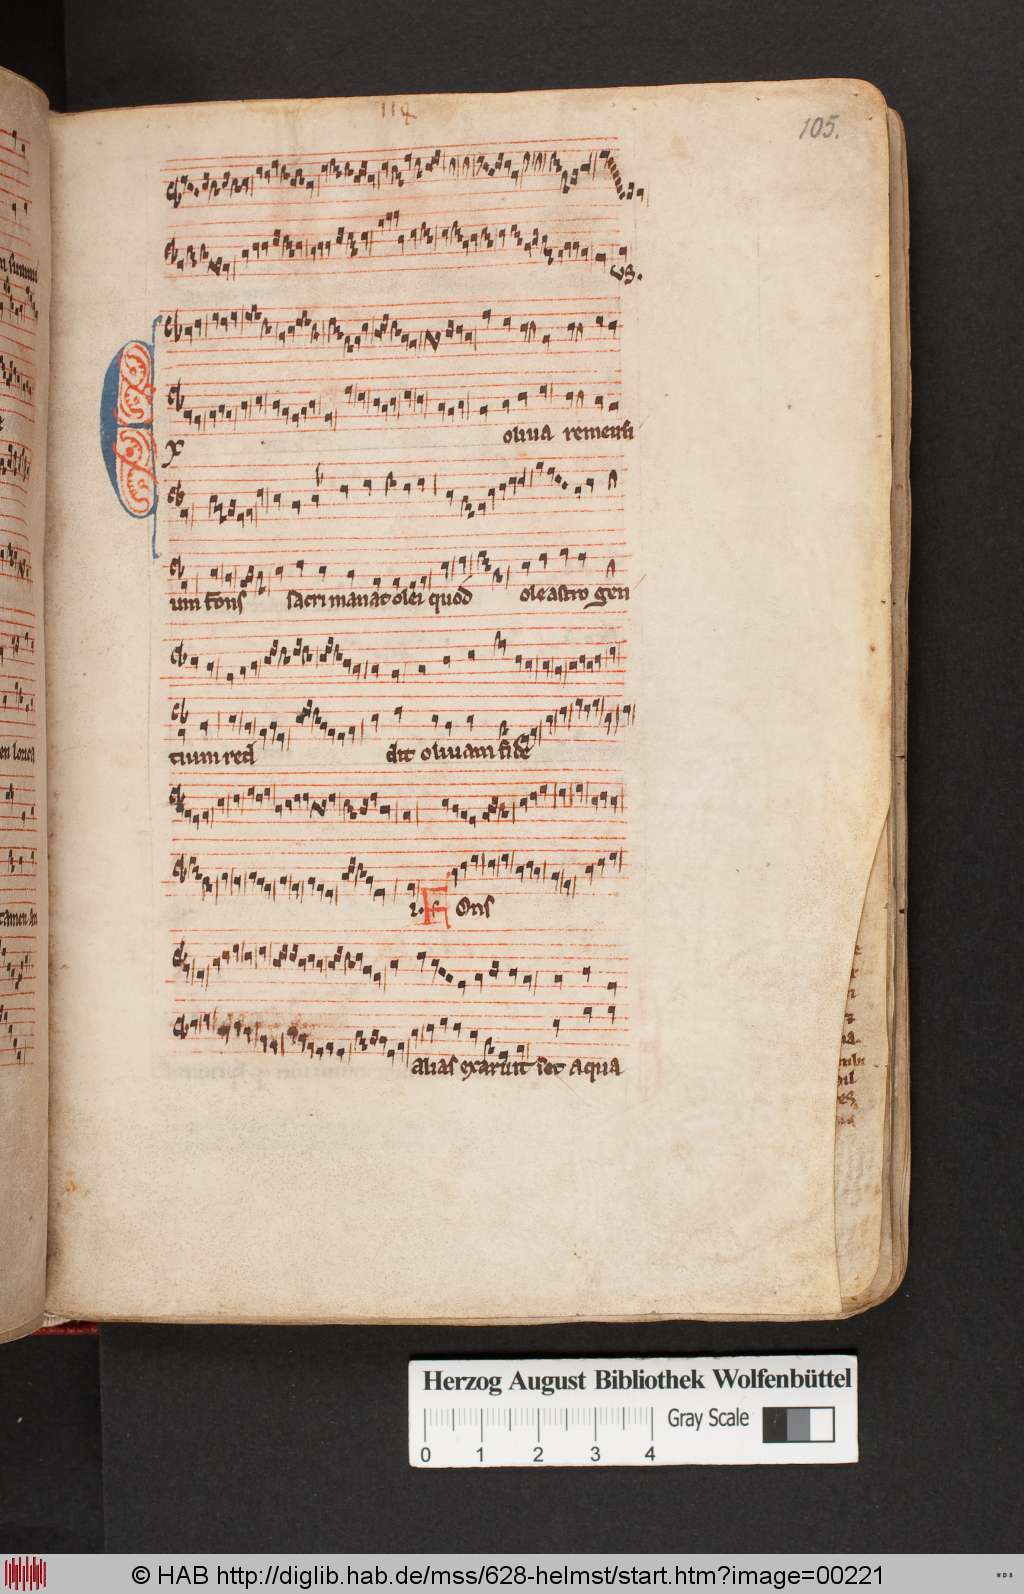 114
105.
us.
X oliua remensi
um fons sacri manat olei quod oleastro gen
tium red dit oliuam fide
i. Fons
alias exaruit set aqua
Herzog August Bibliothek Wolfenbüttel
Gray Scale
0 1 2 3 4
© HAB http://diglib.hab.de/mss/628-helmst/start.htm?image=00221